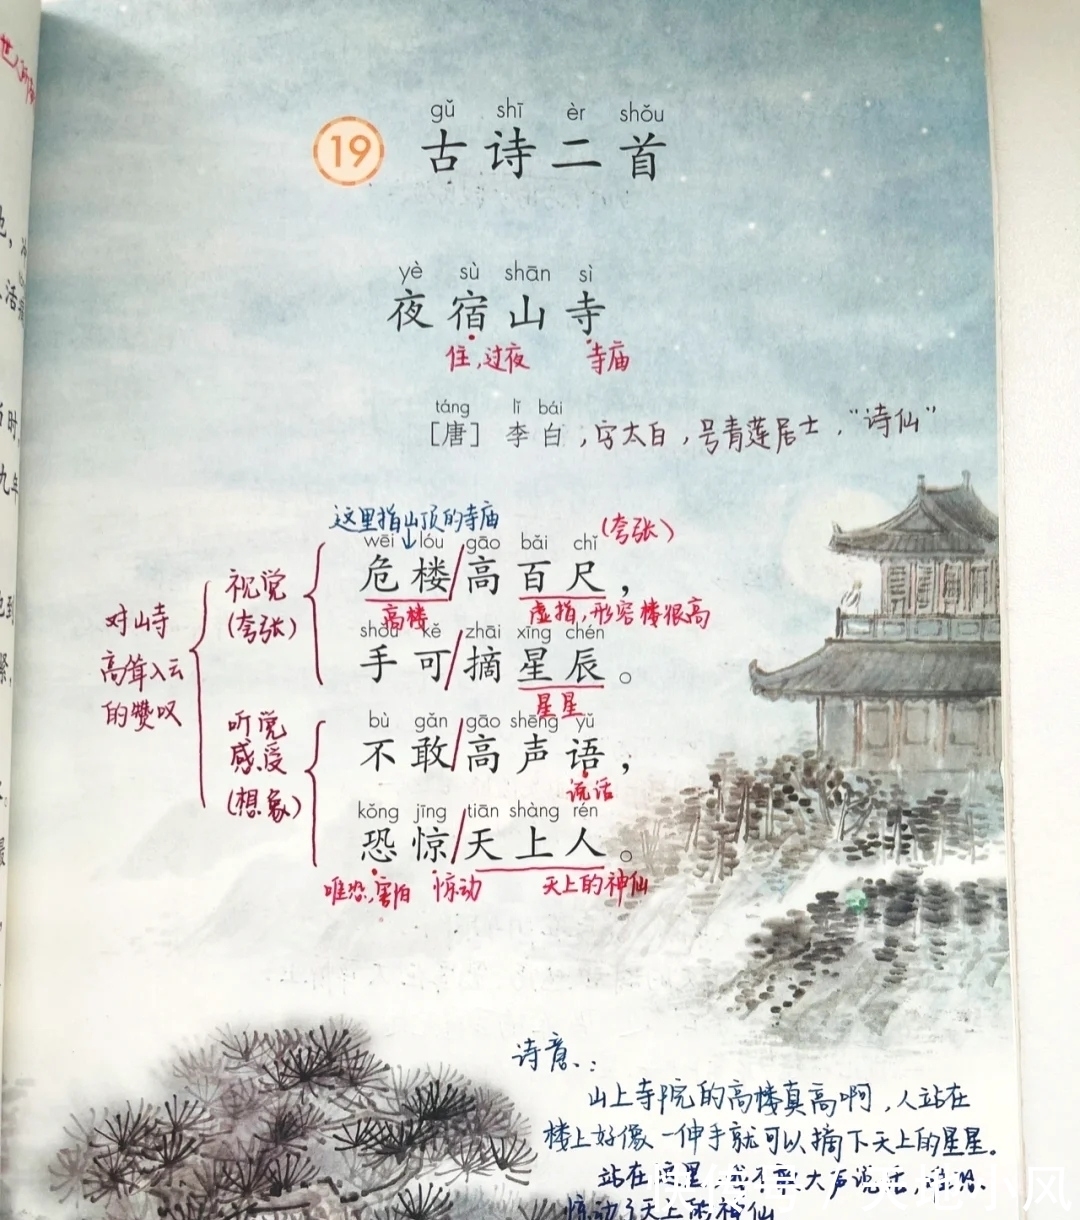 世人
gǔ shī èr shǒu
19 古诗二首
yè sù shān sì
夜宿山寺
住,过夜 寺庙
táng lǐ bái
[唐] 李白,字太白,号青莲居士,“诗仙”
这里指山顶的寺庙
(夸张)
wēi lóu gāo bǎi chǐ
危楼/高百尺,
高楼 虚指,形容楼很高
shǒu kě zhāi xīng chén
手可/摘星辰。
星星
bù gǎn gāo shēng yǔ
不敢/高声语,
说话
kǒng jīng tiān shàng rén
恐惊/天上人。
唯恐,害怕 惊动 天上的神仙
视觉
(夸张)
听觉
感受
(想象)
对山寺
高耸入云
的赞叹
活
时,
九年
诗意:
山上寺院的高楼真高啊,人站在
楼上好像一伸手就可以摘下天上的星星。
站在这里,我不敢大声说话,
惊动了天上的神仙
天地小风